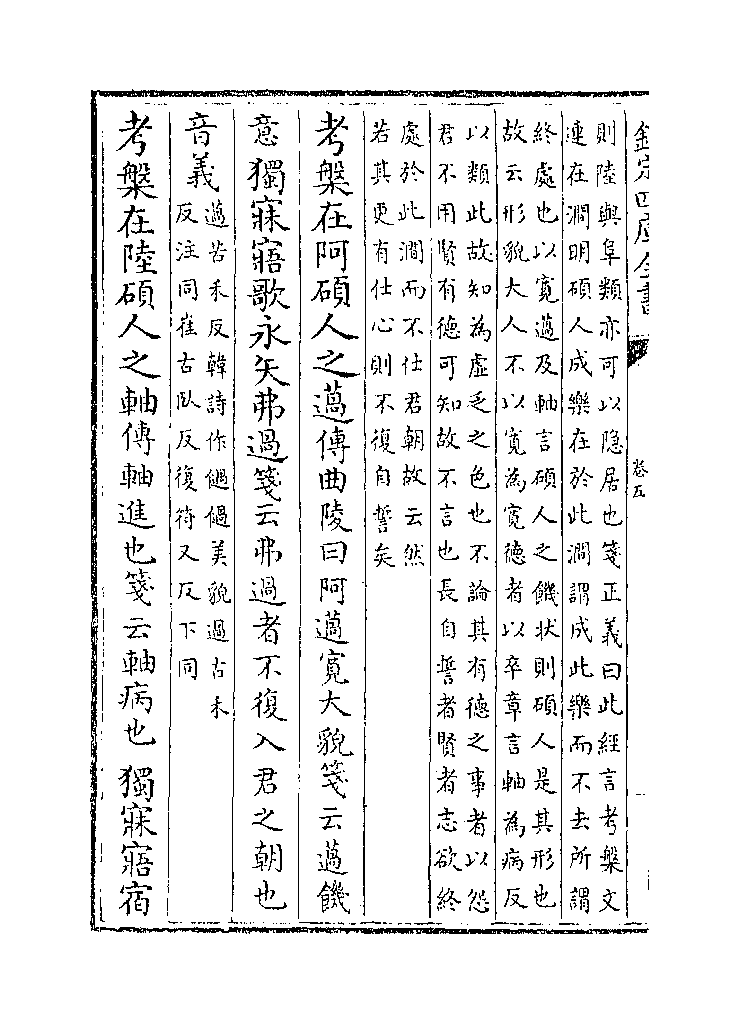 欽定四庫全書
卷五
則陸與阜類亦可以隐居也箋正義曰此經言考槃文
連在澗明碩人成樂在於此澗謂成此樂而不去所謂
終處也以寛薖及軸言碩人之饑状則碩人是其形也
故云形貌大人不以寛為寛德者以卒章言軸為病反
以類此故知為虛乏之色也不論其有德之事者以怨
君不用賢有德可知故不言也長自誓者賢者志欲終
處於此澗而不仕君朝故云然
若其更有仕心則不復自誓矣
考槃在阿碩人之薖傳曲陵曰阿薖寛大貌箋云薖饑
意獨寐寤歌永矢弗過箋云弗過者不復入君之朝也
音義
薖苦禾反韓詩作美貌過古禾
反注同崔古臥反復符又反下同
考槃在陸碩人之軸傳軸進也箋云軸病也 獨寐寤宿